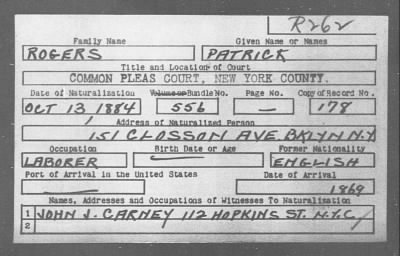 R262
Family Name Given Name or Names
ROGERS PATRICK
Title and Location of Court
COMMON PLEAS COURT, NEW YORK COUNTY.
Date of Naturalization Volume or Bundle No. Page No. Copy of Record No.
OCT 13 1884 556 — 178
Address of Naturalized Person
151 CLOSSON AVE BKLYN N.Y.
Occupation Birth Date or Age Former Nationality
LABORER — ENGLISH
Port of Arrival in the United States Date of Arrival
— 1869
Names, Addresses and Occupations of Witnesses To Naturalization
1 JOHN J. CARNEY 112 HOPKINS ST. N.Y.C.
2